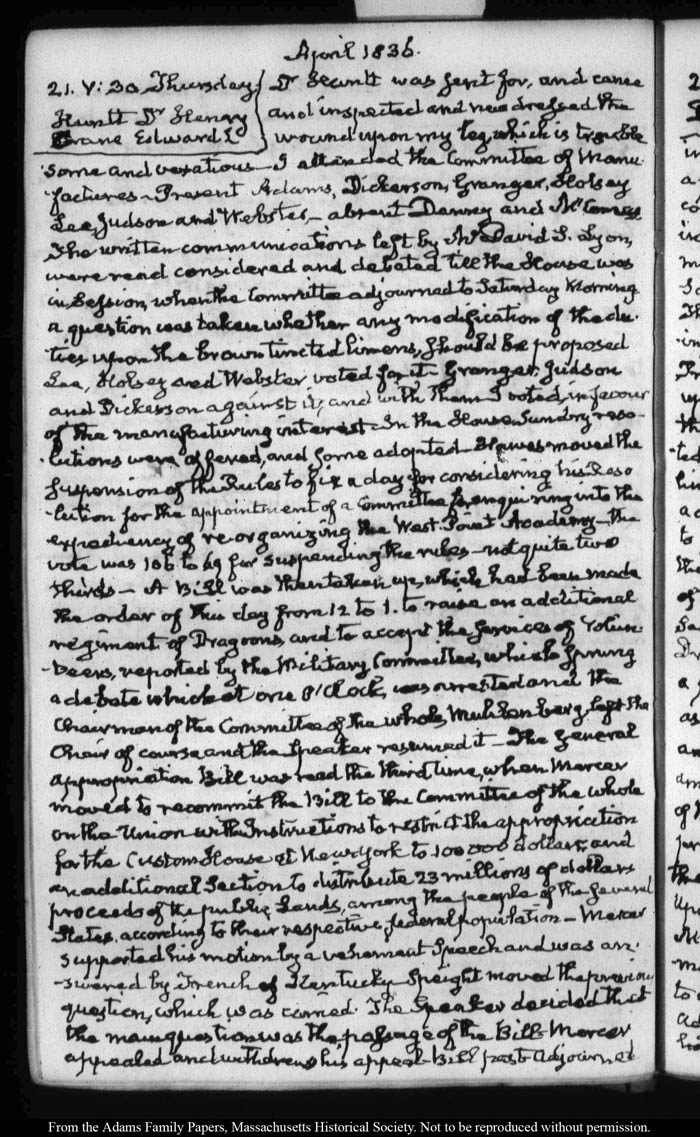 April 1836.
21. V: 30 Thursday Dr Huntt was sent for, and came
Huntt Dr Henry and inspected and new dressed the
Crane Edward wound upon my leg, which is trouble
some and vexatious — I attended the Committee of Manu-
-factures — Present Adams, Dickerson, Granger, Halsey
Lee, Judson and Webster, — absent Denney and
The written communications left by Mr David S. Lyon,
were read considered and debated till the House was
in Session, when the Committee adjourned to Saturday Morning
a question was taken whether any modification of the du-
ties upon the brown tincted linens, should be proposed
Lee, Halsey and Webster voted for it — Granger, Judson
and Dickerson against it, and with them I voted, in favour
of the manufacturing interest — In the House Sundry reso-
-lutions were offered, and some adopted — Hawes moved the
suspension of the Rules to fix a day for considering his Reso
-lution for the appointment of a Committee for enquiring into the
expediency of re-organizing the West-Point Academy — the
vote was 106 to 69 for suspending the rules — not quite two
thirds — A Bill was then taken up, which had been made
the order of this day from 12 to 1. to raise an additional
regiment of Dragoons, and to accept the services of Volun-
-teers, reported by the Military Committee, which sprung
a debate which at one O'Clock, was arrested and the
Chairman of the Committee of the whole, Muhlenberg left the
Chair of course and the Speaker resumed it — The General
appropriation Bill was read the third time, when Mercer
moved to recommit the Bill to the Committee of the whole
on the Union with Instructions to restrict the appropriation
for the Custom House at New York to 100 000 dollars, and
an additional Section to distribute 23 millions of dollars
proceeds of the public Lands, among the people of the several
States, according to their respective federal population — Mercer
supported his motion by a vehement Speech and was an-
-swered by French of Kentucky. Speight moved the previous
question, which was carried. The Speaker decided that
the main question was the passage of the Bill — Mercer
appealed and withdrew his appeal — Bill past — Adjourned
From the Adams Family Papers, Massachusetts Historical Society. Not to be reproduced without permission.